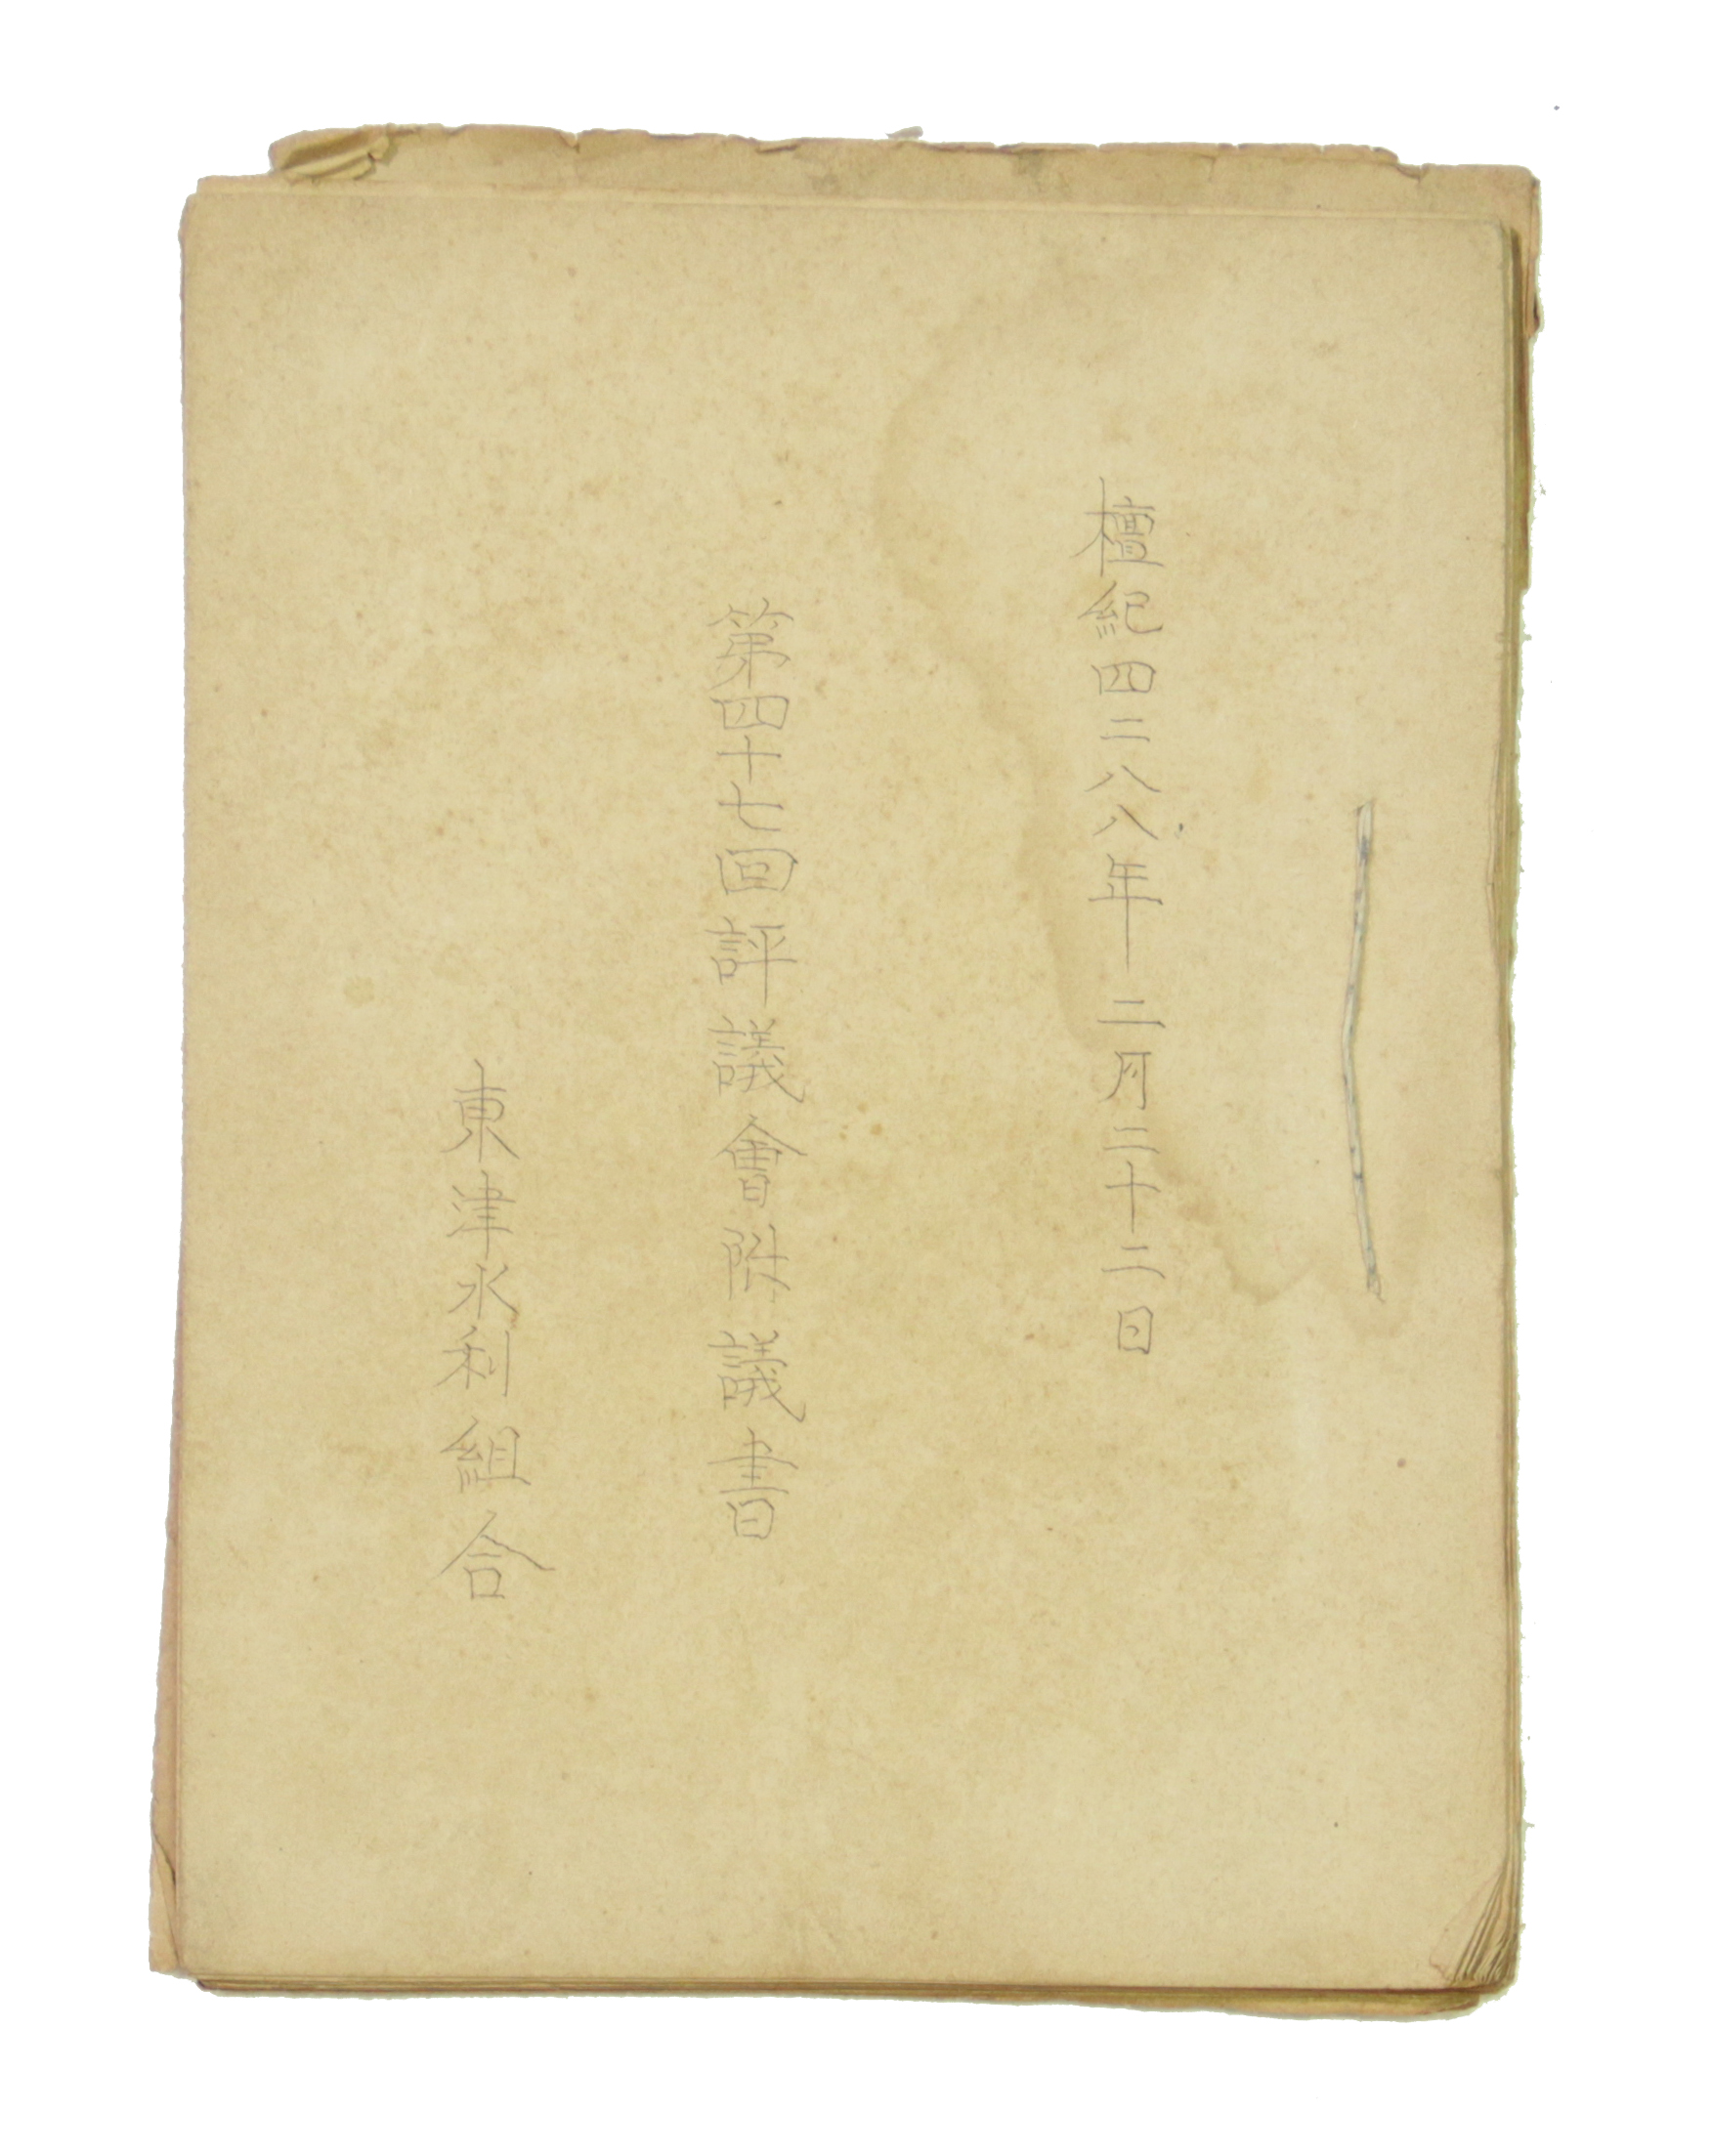 檀紀四二八八年二月二十二日
第四十七回評議會附議書
東津水利組合